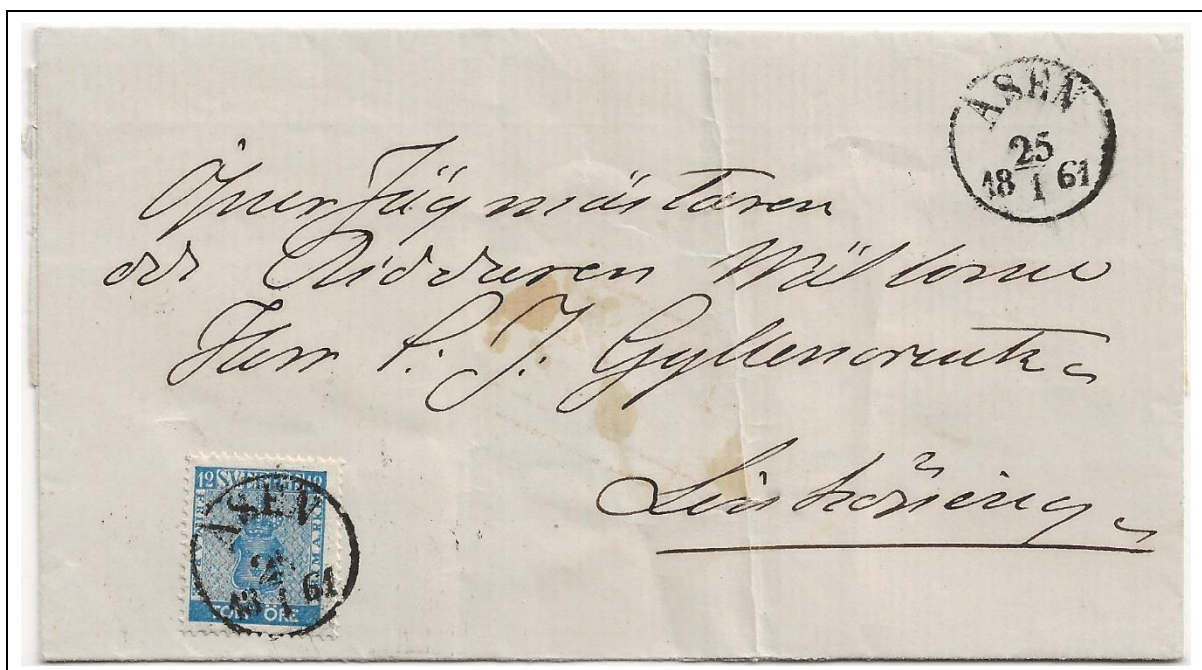 ASEN
25
18 1 61
Öfver Jägmästaren
och Riddaren Wälborne
Herr P. J. Gyllenkrook
Linköping
12 SVERIGE 12
FRIMÄRKE
TOLF ÖRE
ASEN
25
18 1 61